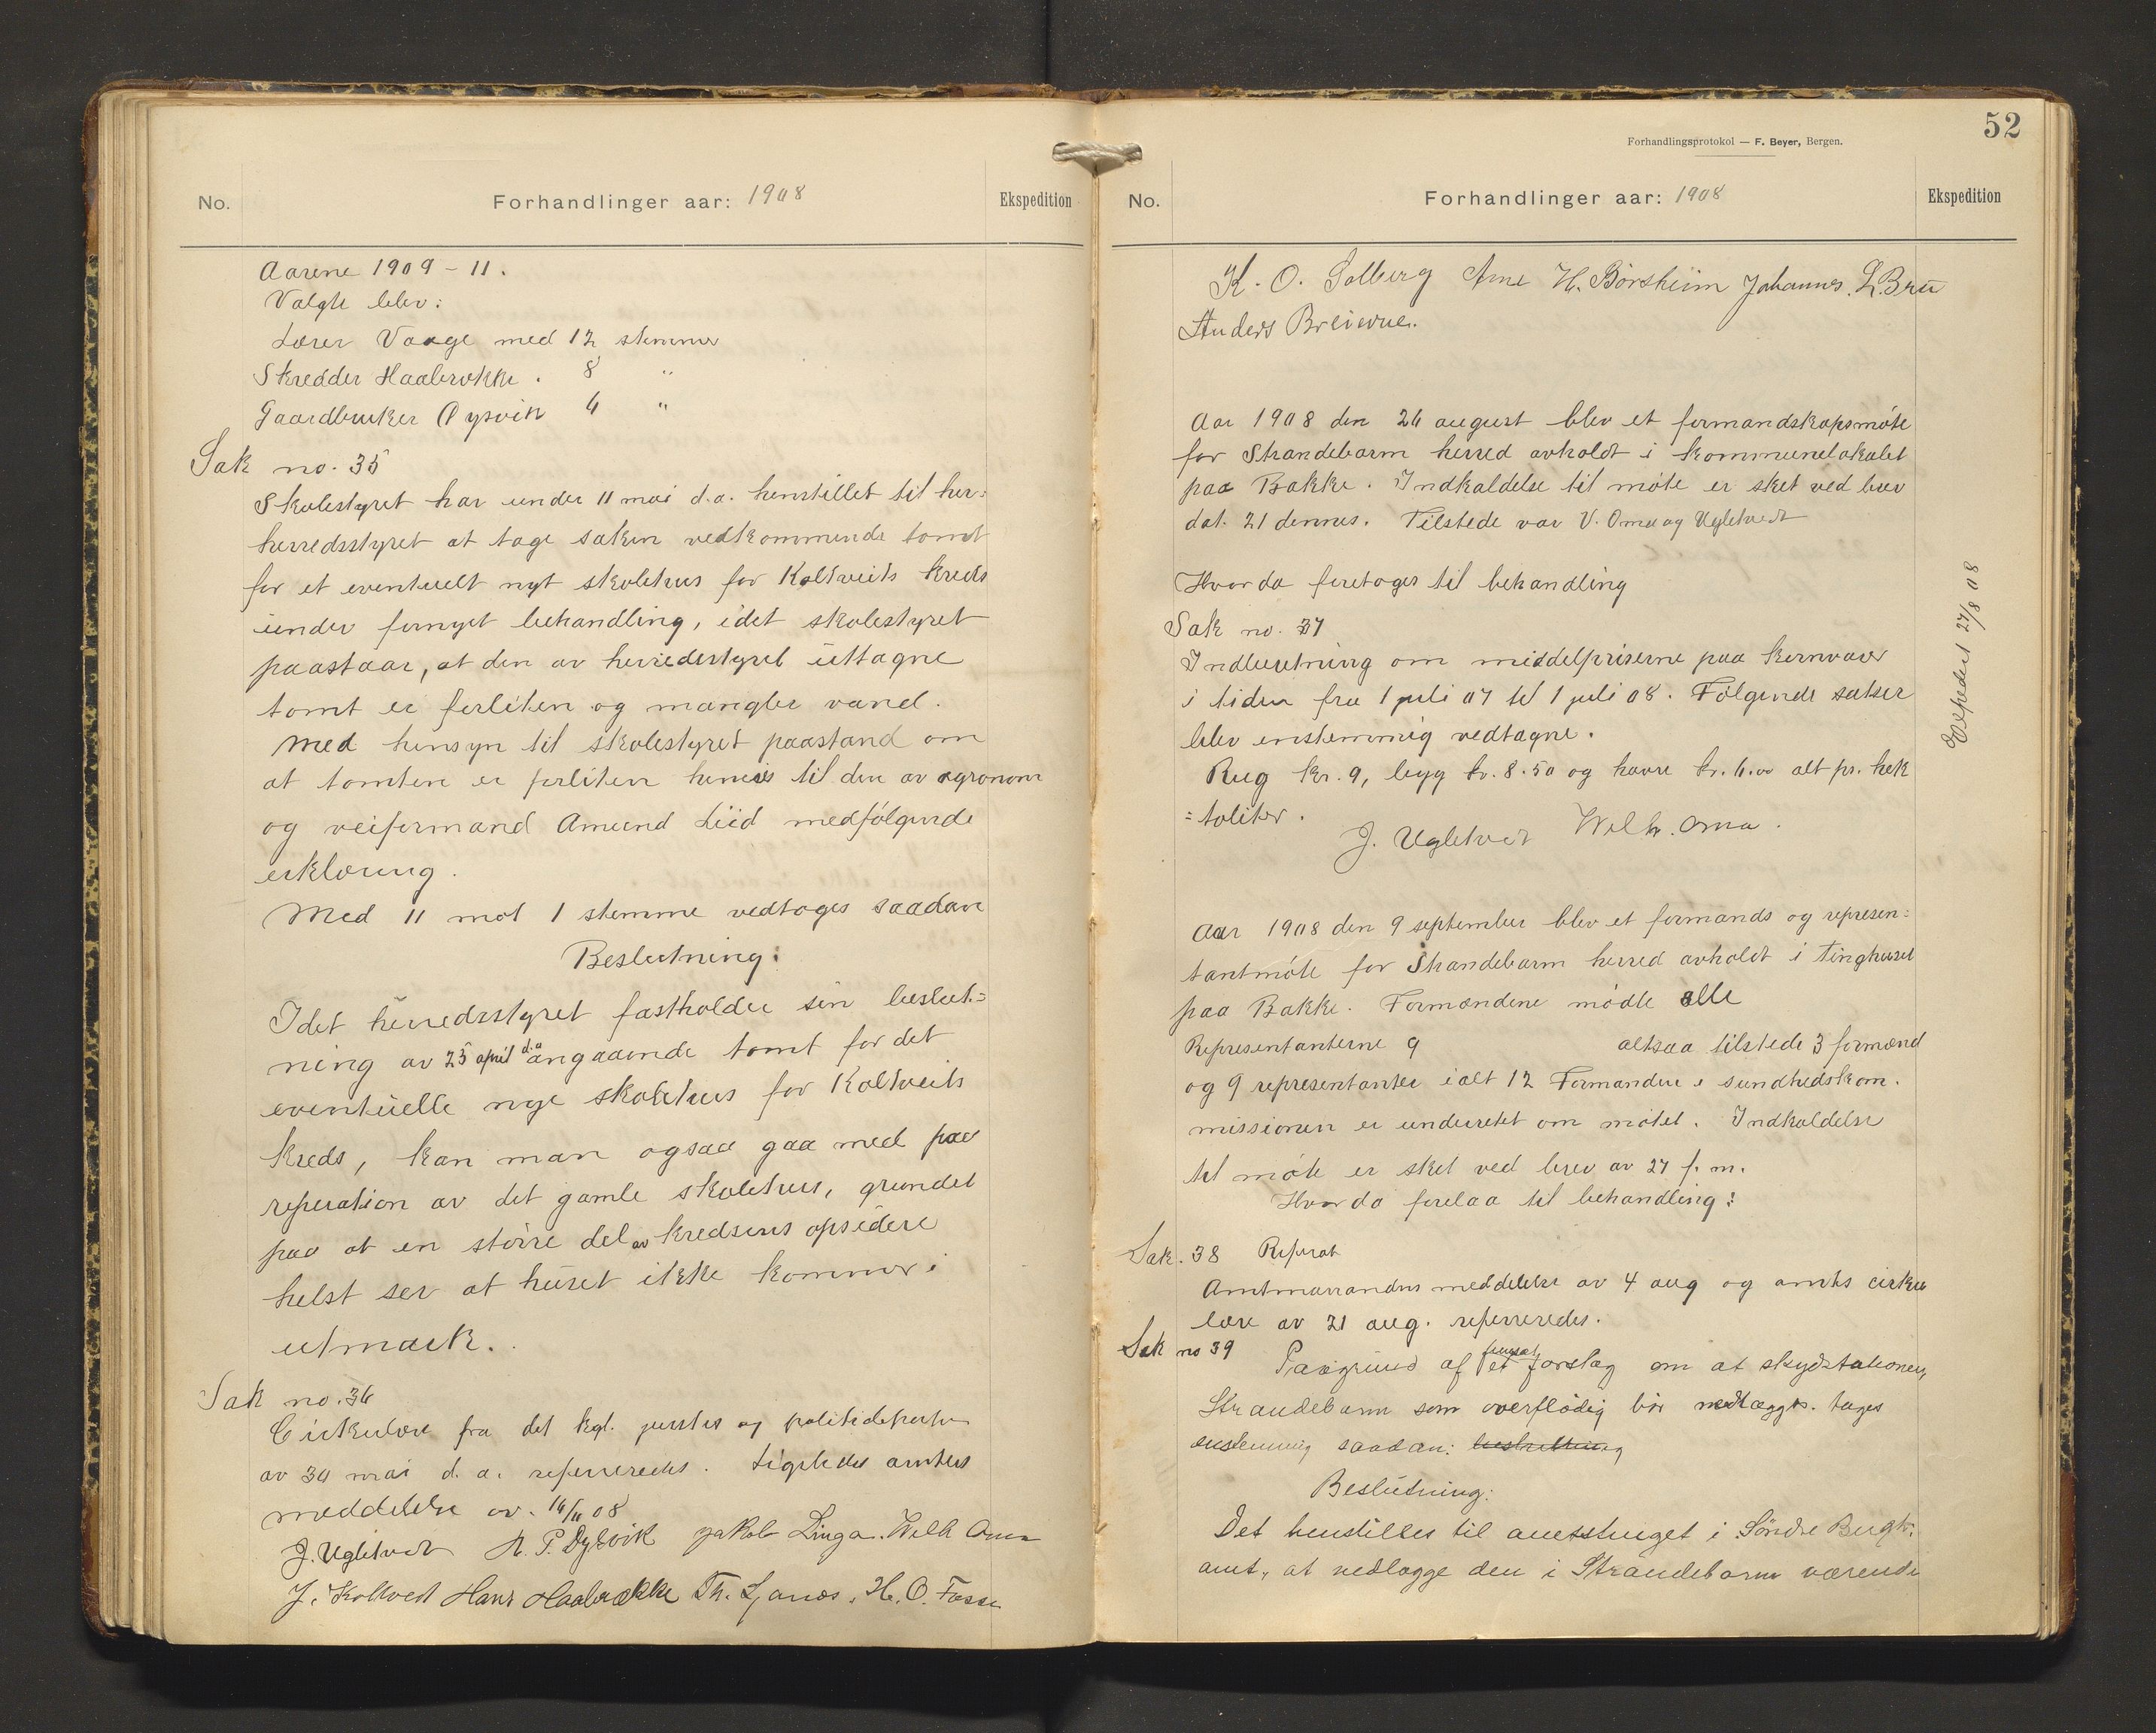 No.
Forhandlinger aar: 1908
Ekspedition
Aarene 1909 - 11.
Valgte blev:
Lærer Vaage med 12 stemmer
Skredder Haabrekke . 8 "
Gaardbruker Øysvik 6 "
Sak no. 35
Skolestyret har under 11 mai d.a. henstillet til her=
herredsstyret at tage saken vedkommende tomt
for et eventuelt nyt skolehus for Koltveits kreds
under fornyet behandling, idet skolestyret
paastaar, at den av herredsstyret uttagne
tomt er forliten og mangler vand.
Med hensyn til skolestyret paastand om
at tomten er forliten henvis til den av agronom
og veiformand Amund Liid medfølgende
erklæring.
Med 11 mot 1 stemme vedtoges saadan
Beslutning:
Idet herredsstyret fastholder sin beslut=
ning av 25 april d.a angaaende tomt for det
eventuelle nye skolehus for Koltveits
kreds, kan man ogsaa gaa med paa
reperation av det gamle skolehus, grundet
paa at en større del av kredsens opsidere
helst ser at huset ikke kommer i
utmark.
Sak no. 36
Cirkulære fra det kgl. justis og politidepartm
av 30 mai d. a. refereredes. Ligeledes amtets
meddelelse av. 16/6 08
J. Ugletvedt A. P. Dysvik Jakob Linga. Wilh Oma
J. Koltvedt Hans Haabrekke Th. Ljanes. H. O. Fosse
52
Forhandlingsprotokol — F. Beyer, Bergen.
No.
Forhandlinger aar: 1908
Ekspedition
K. O. Solberg Arne H. Børsheim Johannes. L. Bru
Anders Breivne.
Aar 1908 den 26 august blev et formandskapsmøte
for Strandebarm herred avholdt i kommunelokalet
paa Bakke. Indkaldelse til møte er sket ved brev
dat. 21 dennes. Tilstede var V. Oma og Ugletvedt
Hvorda foretoges til behandling
Sak no. 37
Indberetning om middelpriserne paa kornvarer
i tiden fra 1 juli 07 til 1 juli 08. Følgende satser
blev enstemmig vedtagne.
Rug kr. 9, byg kr. 8.50 og havre kr. 6.00 alt pr. hek
=toliter.
J. Ugletvedt Wilh. Oma.
Expedert 27/8 08
Aar 1908 den 9 september blev et formands og represen=
tantmøte for Strandebarm herred avholdt i tinghuset
paa Bakke. Formændene mødte alle
Representanterne 9 altsaa tilstede 3 formænd
og 9 representanter ialt 12 Formanden i sundhedskom.
missionen er underrettet om møtet. Indkaldelse
til møte er sket ved brev av 27 f. m.
Hvorda forelaa til behandling:
Sak. 38 Referat
Amtmannandens meddelelse av 4 aug og amts cirku
lære av 21 aug. refereredes.
Sak no 39
Paagrund af et fremsat forslag om at skydsstationen,
Strandebarm som overflødig bør nedlægges. toges
enstemmig saadan: beslutning
Beslutning:
Det henstilles til amtstinget i Søndre Bergh.
amt, at nedlægge den i Strandebarm værende